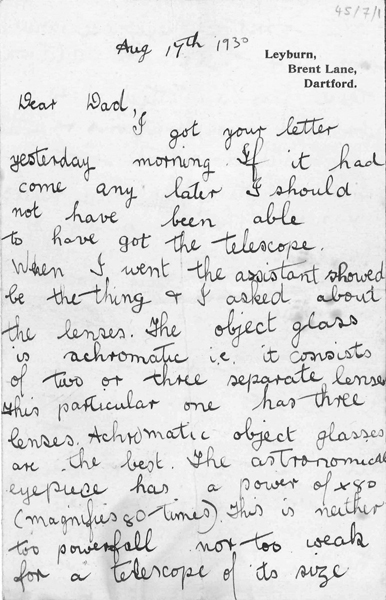 45/7/1
Aug 17th 1930
Leyburn,
Brent Lane,
Dartford.
Dear Dad,
I got your letter
yesterday morning. If it had
come any later I should
not have been able
to have got the telescope.
When I went the assistant showed
be the thing & I asked about
the lenses. The object glass
is achromatic i.e. it consists
of two or three separate lenses
This particular one has three
lenses. Achromatic object glasses
are the best. The astronomical
eyepiece has a power of ×80
(magnifies 80 times). This is neither
too powerfull nor too weak
for a telescope of its size